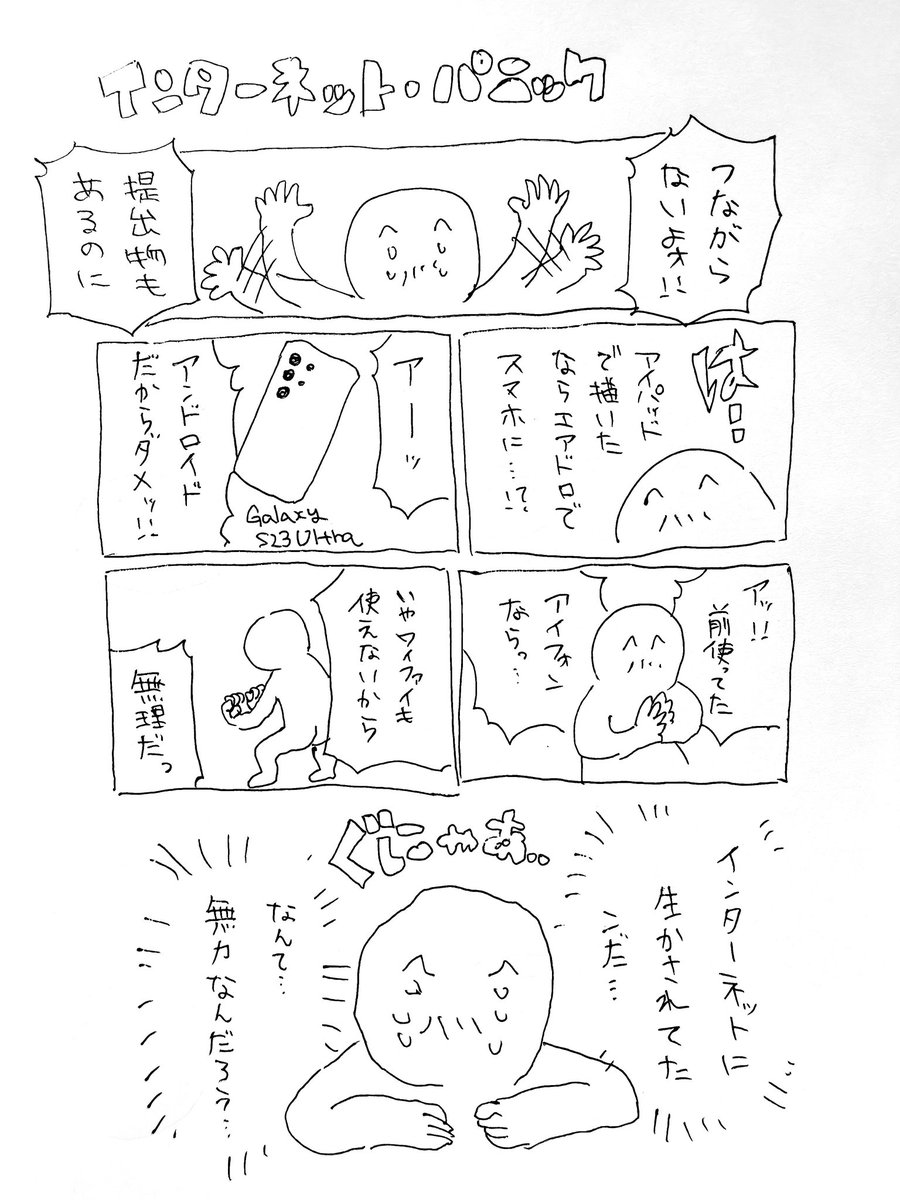 インターネット・パニック
つながら
ないよォ!!
提出物も
あるのに
は…
アイパッド
で描いた
ならエアドロで
スマホに…って、!
アーッ
Galaxy
S23 Ultra
アンドロイド
だからダメッ!!
アッ!!
前使ってた
アイフォン
ならっ…
いやワイファイも
使えないから
無理だっ
ぐじゃあ..
インターネットに
生かされてた
ンだ…
なんて…
無力なんだろう…